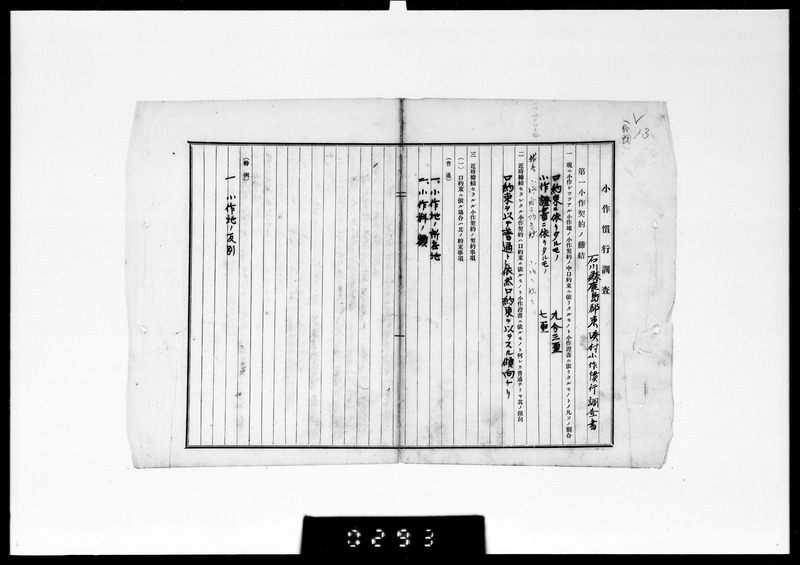 小作慣行調査
石川縣鹿島郡東湊村小作慣行調査書
第一 小作契約ノ締結
一 現ニ小作シツツアル小作地ノ小作契約ノ中口約束ニ依リタルモノト小作證書ニ依リタルモノトノ凡ソノ割合
口約束ニ依リタルモノ 九分三厘
小作證書ニ依リタルモノ 七厘
二 近時締結セラレタル小作契約ハ口約束ニ依ルモノト小作證書ニ依ルモノト何レカ普通ナリヤ其ノ傾向
口約束ヲ以テ普通トシ依然口約束ヲ以テスル傾向ナリ
三 近時締結セラルル小作契約ノ契約事項
(一) 口約束ニ依ル場合ハ其ノ約束事項
(普通)
一、小作地ノ所在地
一、小作料ノ額
(特例)
一 小作地ノ反別
13
0293